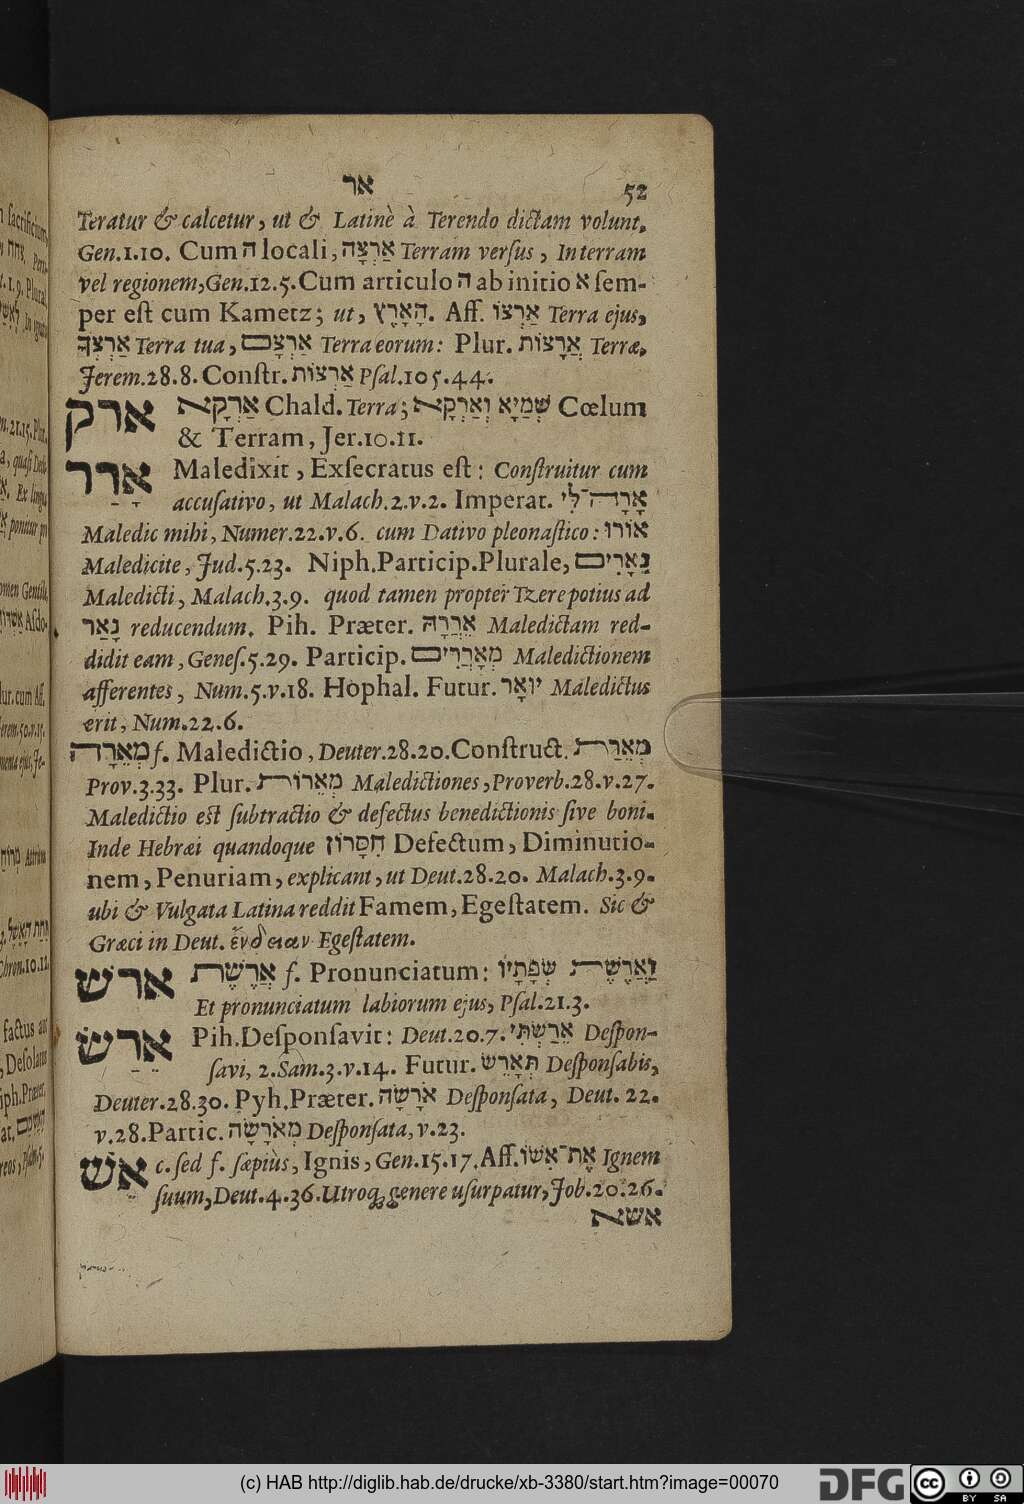 אר 52
Teratur & calcetur, ut & Latinè à Terendo dictam volunt,
Gen.1.10. Cum ה locali, אַרְצָה Terram verſus, In terram
vel regionem, Gen.12.5. Cum articulo ה ab initio א ſem-
per eſt cum Kametz; ut, הָאָרֶץ. Aff. אַרְצוֹ Terra ejus,
אַרְצְךָ Terra tua, אַרְצָם Terra eorum: Plur. אֲרָצוֹת Terræ,
Jerem.28.8. Conſtr. אַרְצוֹת Pſal.105.44.
ארק אַרְקָא Chald. Terra; שְׁמַיָא וְאַרְקָא Cœlum
& Terram, Jer.10.11.
אָרַר Maledixit, Exſecratus eſt: Conſtruitur cum
accuſativo, ut Malach.2.v.2. Imperat. אָרָה־לִּי
Maledic mihi, Numer.22.v.6. cum Dativo pleonaſtico: אוֹרוּ
Maledicite, Jud.5.23. Niph.Particip.Plurale, נֵאָרִים
Maledicti, Malach.3.9. quod tamen propter Tzere potius ad
נָאַר reducendum. Pih. Præter. אֵרֲרָהּ Maledictam red-
didit eam, Geneſ.5.29. Particip. מְאָרֲרִים Maledictionem
afferentes, Num.5.v.18. Hophal. Futur. יוּאָר Maledictus
erit, Num.22.6.
מְאֵרָה f. Maledictio, Deuter.28.20. Conſtruct. מְאֵרַת
Prov.3.33. Plur. מְאֵרוֹת Maledictiones, Proverb.28.v.27.
Maledictio est ſubtractio & defectus benedictionis ſive boni.
Inde Hebræi quandoque חִסָּרוֹן Defectum, Diminutio-
nem, Penuriam, explicant, ut Deut.28.20. Malach.3.9.
ubi & Vulgata Latina reddit Famem, Egeſtatem. Sic &
Græci in Deut. ἔνδειαν Egeſtatem.
ארש אֲרֶשֶׁת f. Pronunciatum: וַאֲרֶשֶׁת שְׂפָתָיו
Et pronunciatum labiorum ejus, Pſal.21.3.
אֵרַשׂ Pih. Deſponſavit: Deut.20.7. אֵרַשְׂתִּי Deſpon-
ſavi, 2.Sam.3.v.14. Futur. תְּאָרֵשׂ Deſponſabis,
Deuter.28.30. Pyh.Præter. אֹרָשָׂה Deſponſata, Deut. 22.
v.28. Partic. מְאֹרָשָׂה Deſponſata, v.23.
אֵשׁ c. ſed f. ſæpiùs, Ignis, Gen.15.17. Aff. אֶת־אִשּׁוֹ Ignem
ſuum, Deut.4.36. Utroq; genere uſurpatur, Job.20.26.
אשא
(c) HAB http://diglib.hab.de/drucke/xb-3380/start.htm?image=00070
DFG
cc BY SA